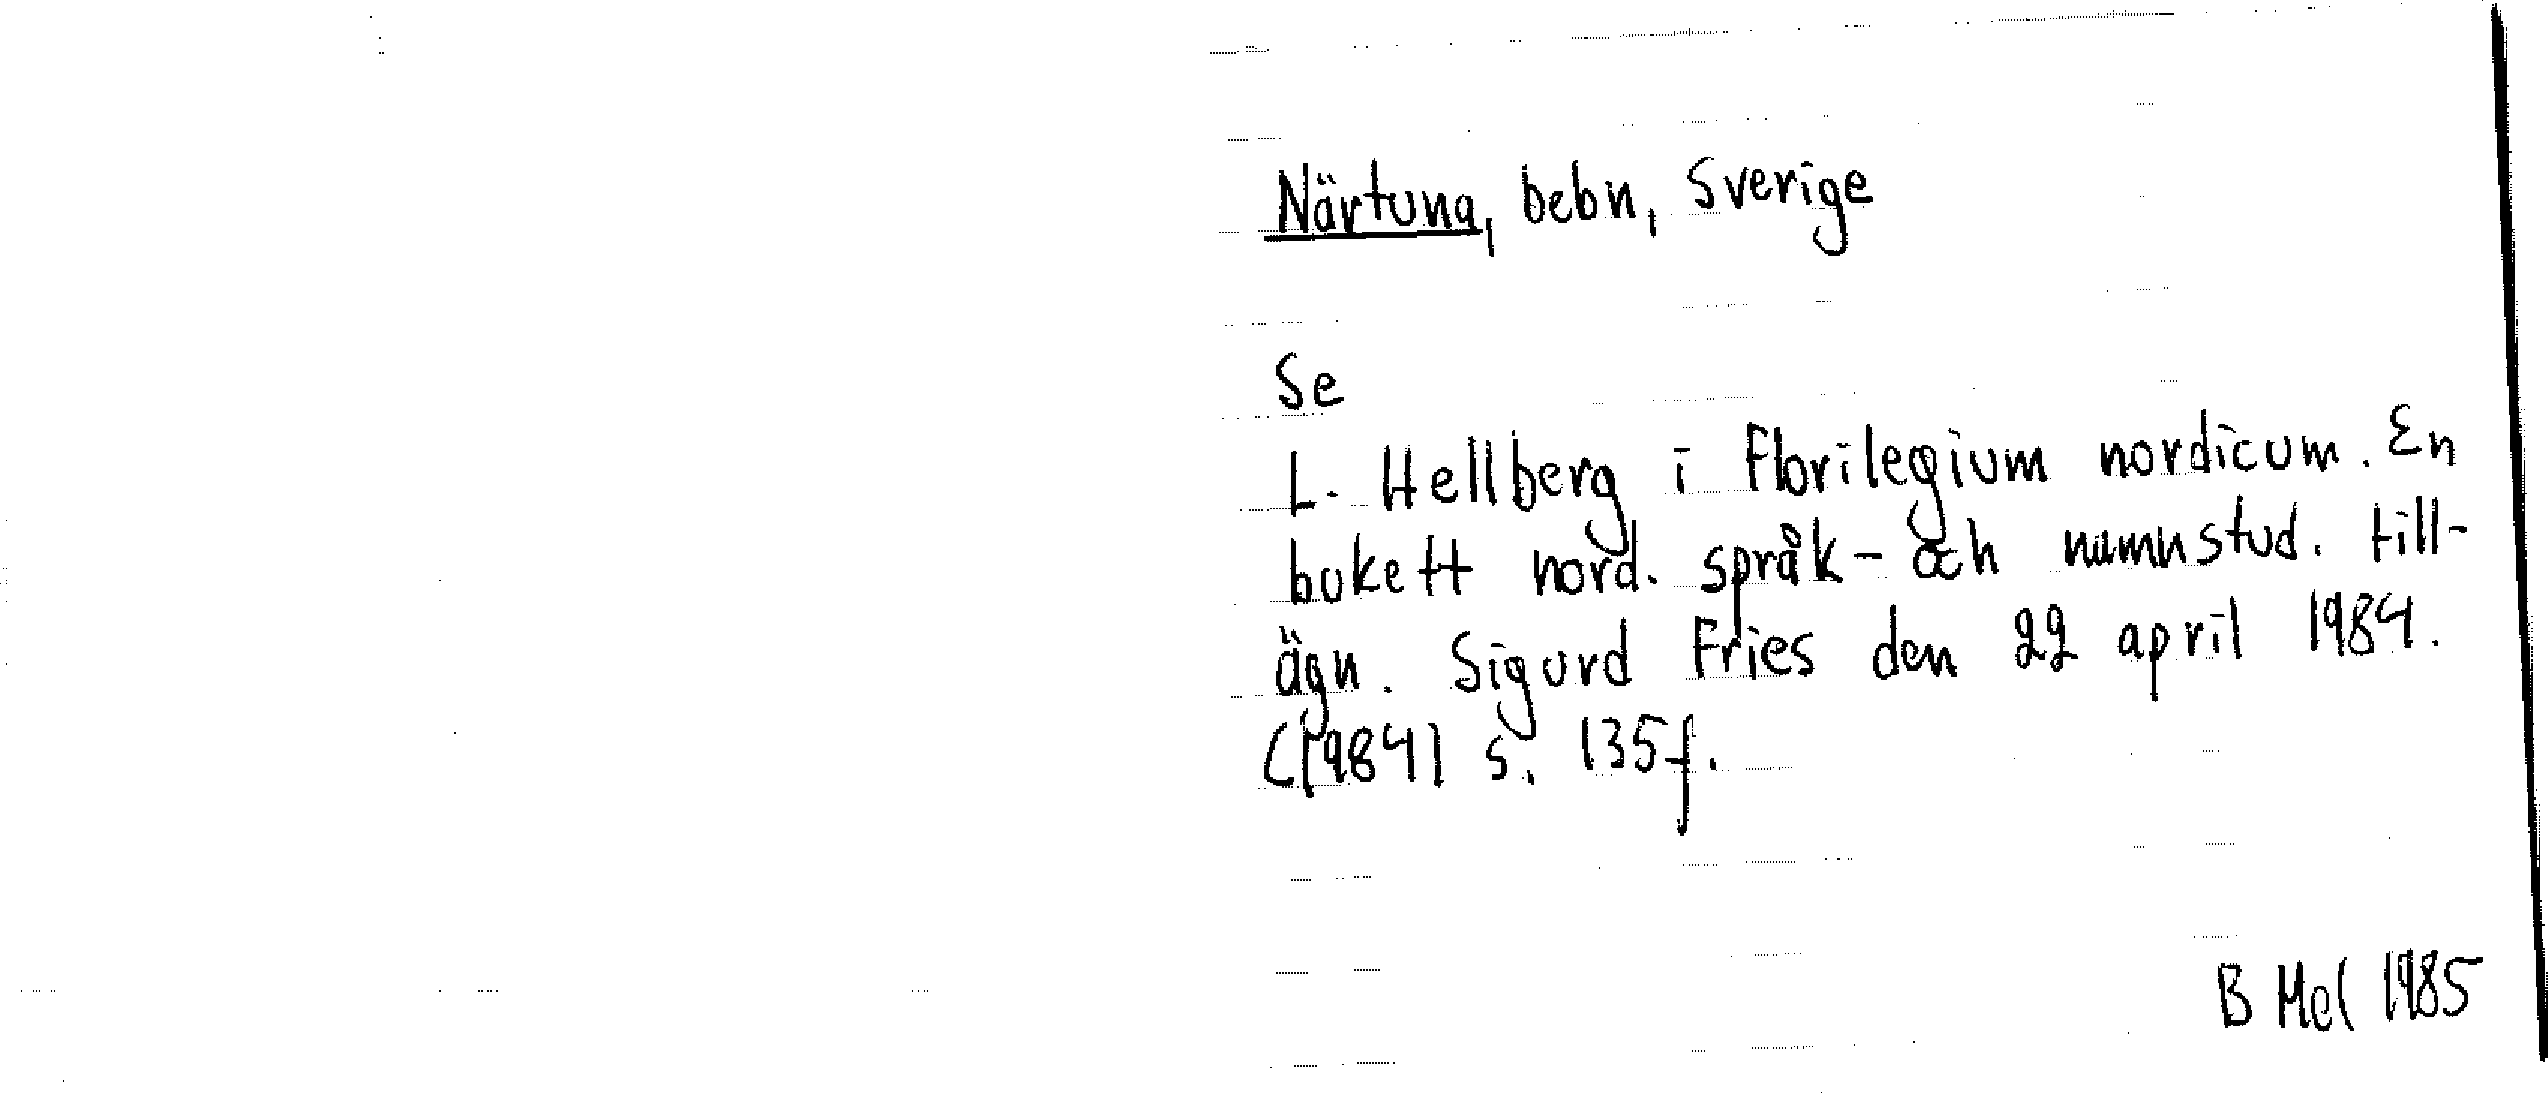 Närtuna, bebn, Sverige
Se
L. Hellberg i Florilegium nordicum. En
bukett nord. språk- och namnstud. till-
ägn. Sigurd Fries den 22 april 1984.
(1984) s. 135f.
B Mel 1985